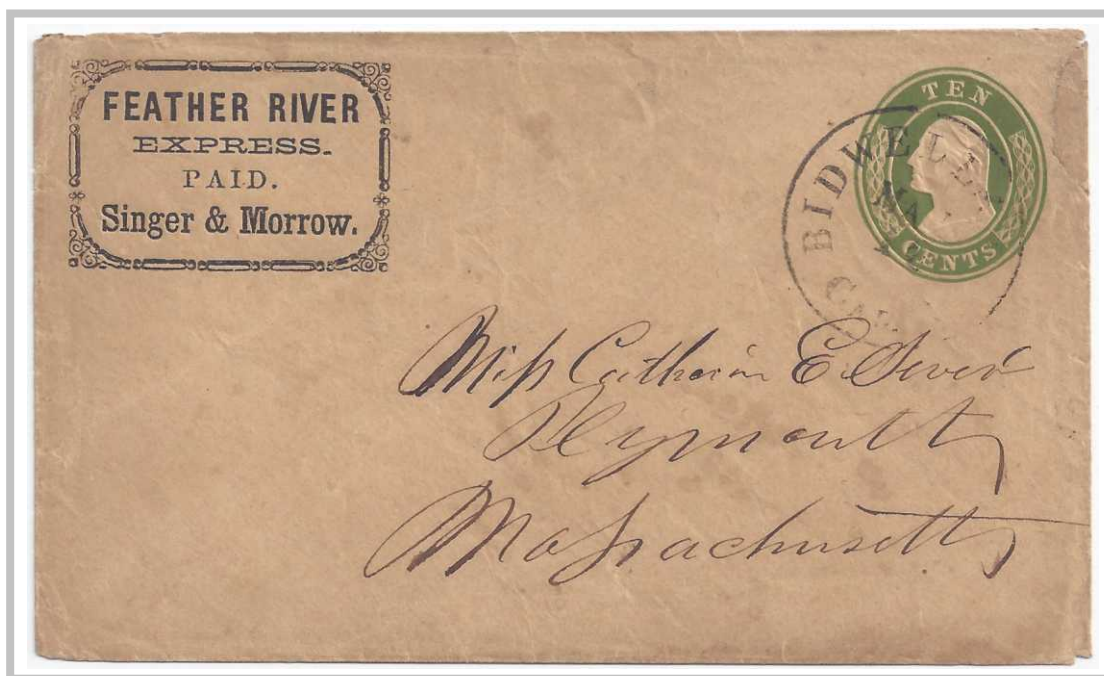 FEATHER RIVER
EXPRESS.
PAID.
Singer & Morrow.
TEN
CENTS
BIDWELL
CAL
Miss Catherin E. Sever
Plymouth
Massachusetts